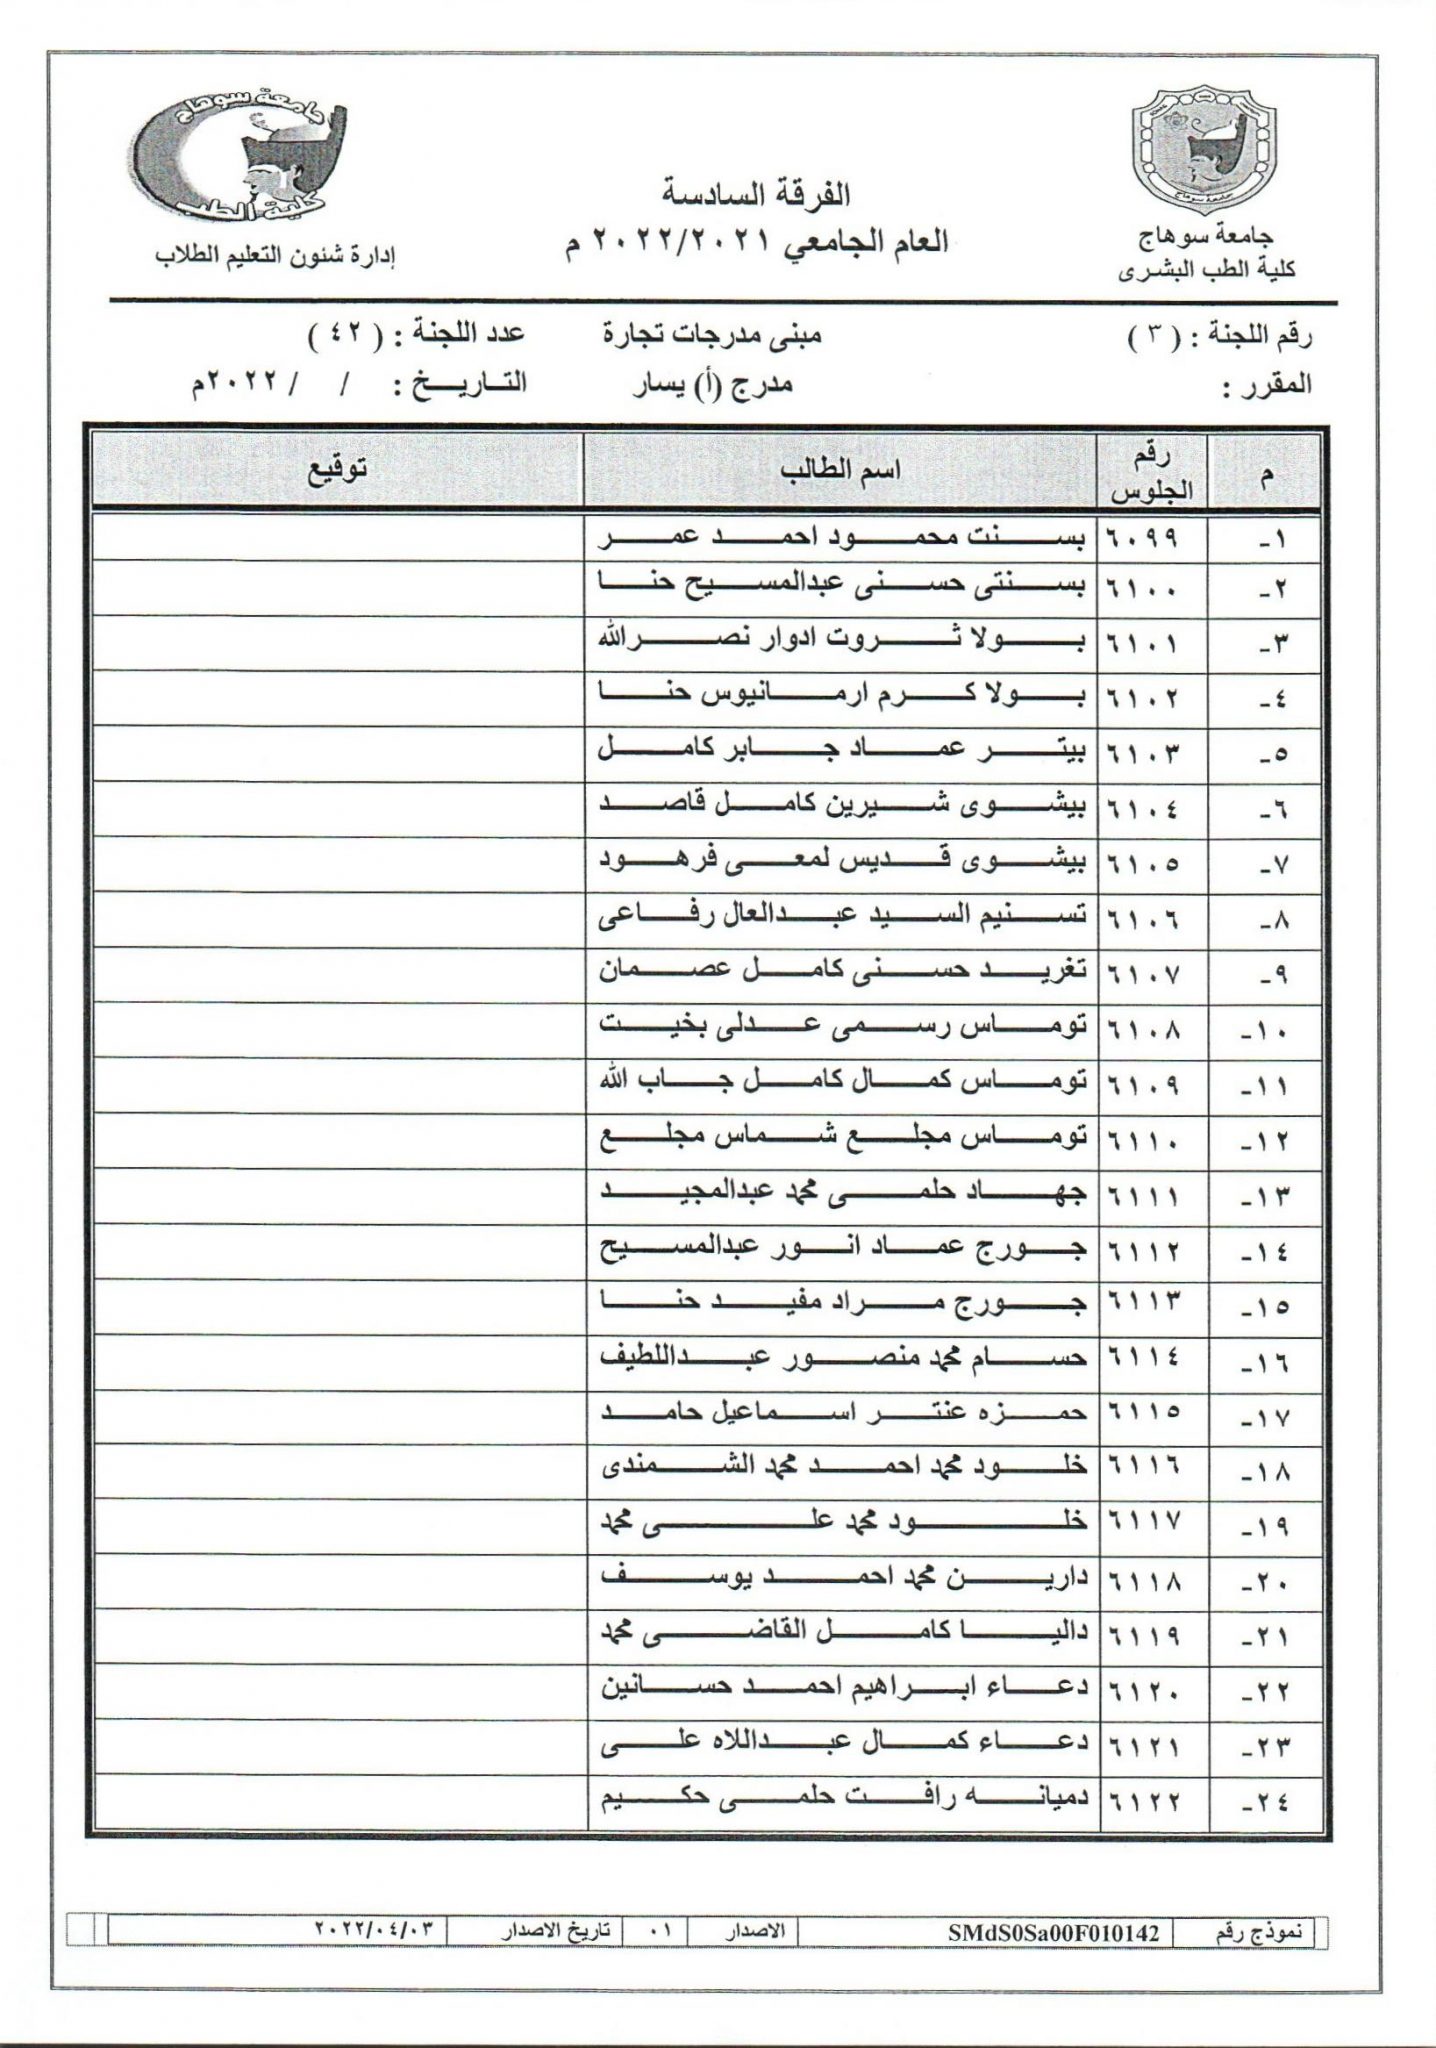 جامعة سوهاج
كلية الطب
جامعة سوهاج
جامعة سوهاج
كلية الطب البشرى
الفرقة السادسة
العام الجامعي ٢٠٢٢/٢٠٢١ م
إدارة شئون التعليم الطلاب
رقم اللجنة : ( ٣ ) مبنى مدرجات تجارة عدد اللجنة : ( ٤٢ )
المقرر : مدرج (أ) يسار التاريخ : / / ٢٠٢٢م
م رقم الجلوس اسم الطالب توقيع
١- ٦٠٩٩ بسنت محمود احمد عمر
٢- ٦١٠٠ بسنتى حسنى عبدالمسيح حنا
٣- ٦١٠١ بولا ثروت ادوار نصرالله
٤- ٦١٠٢ بولا كرم ارمانيوس حنا
٥- ٦١٠٣ بيتر عماد جابر كامل
٦- ٦١٠٤ بيشوى شيرين كامل قاصد
٧- ٦١٠٥ بيشوى قديس لمعى فرهود
٨- ٦١٠٦ تسنيم السيد عبدالعال رفاعى
٩- ٦١٠٧ تغريد حسنى كامل عصمان
١٠- ٦١٠٨ توماس رسمى عدلى بخيت
١١- ٦١٠٩ توماس كمال كامل جاب الله
١٢- ٦١١٠ توماس مجلع شماس مجلع
١٣- ٦١١١ جهاد حلمى محمد عبدالمجيد
١٤- ٦١١٢ جورج عماد انور عبدالمسيح
١٥- ٦١١٣ جورج مراد مفيد حنا
١٦- ٦١١٤ حسام محمد منصور عبداللطيف
١٧- ٦١١٥ حمزه عنتر اسماعيل حامد
١٨- ٦١١٦ خلود محمد احمد محمد الشمندى
١٩- ٦١١٧ خلود محمد على محمد
٢٠- ٦١١٨ دارين محمد احمد يوسف
٢١- ٦١١٩ داليا كامل القاضى محمد
٢٢- ٦١٢٠ دعاء ابراهيم احمد حسانين
٢٣- ٦١٢١ دعاء كمال عبداللاه على
٢٤- ٦١٢٢ دميانه رافت حلمى حكيم
نموذج رقم SMdS0Sa00F010142 الاصدار ٠١ تاريخ الاصدار ٢٠٢٢/٠٤/٠٣